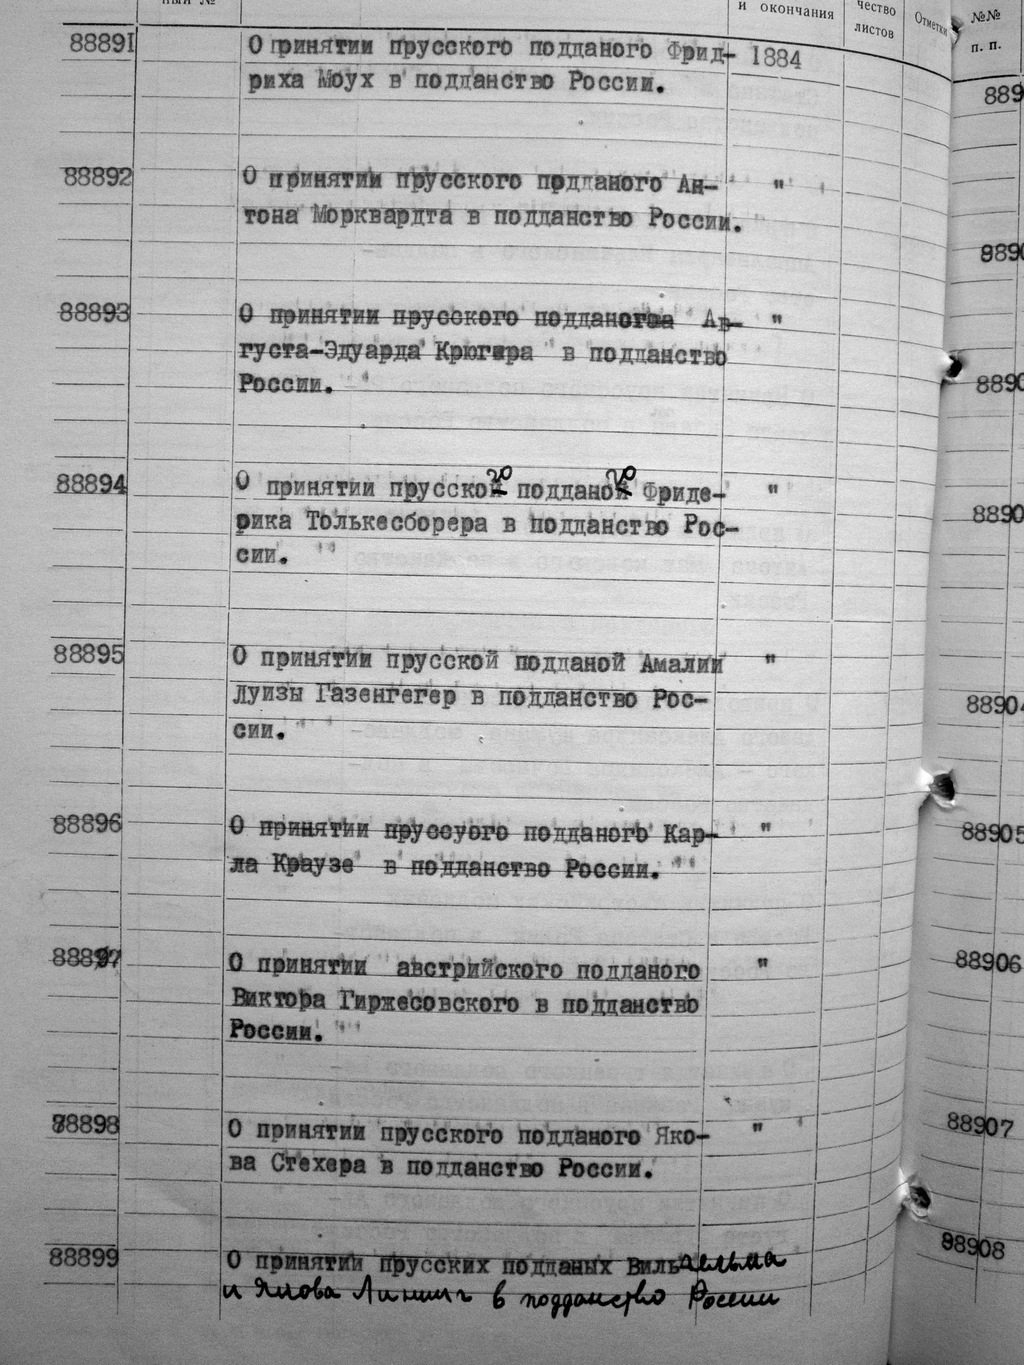 ный №
и окончания
чество
листов
Отметки
№№
п. п.
88891
О принятии прусского подданого Фрид-
1884
риха Моух в подданство России.
88892
О принятии прусского подданого Ан-
"
тона Морквардта в подданство России.
88893
О принятии прусского подданства Ав-
"
густа-Эдуарда Крюгера в подданство
России.
88894
О принятии прусского подданого Фриде-
"
рика Толькесборера в подданство Рос-
сии.
88895
О принятии прусской подданой Амалии
"
Луизы Газенгегер в подданство Рос-
сии.
88896
О принятии пруссуого подданого Кар-
"
ла Краузе в подданство России.
88897
О принятии австрийского подданого
"
Виктора Гиржесовского в подданство
России.
88898
О принятии прусского подданого Яко-
"
ва Стехера в подданство России.
88899
О принятии прусских подданых Вильгельма
и Якова Лининг в подданство России
889
8890
8890
8890
88904
88905
88906
88907
88908